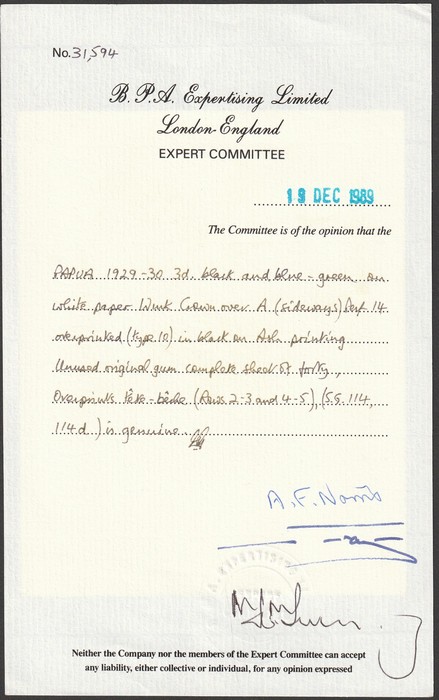 No. 31,594
B. P.A. Expertising Limited
London-England
EXPERT COMMITTEE
19 DEC 1989
The Committee is of the opinion that the
PAPUA 1929-30 3d. black and blue-green on
white paper Wmk Crown over A (sideways) Perf 14
overprinted (type 10) in black on Ash printing
Unused original gum complete sheet of forty,
Overprints tête-bêche (Rows 2-3 and 4-5), (SG.114,
114d.) is genuine.
A.F. Norris
EXPERTISING
Neither the Company nor the members of the Expert Committee can accept
any liability, either collective or individual, for any opinion expressed